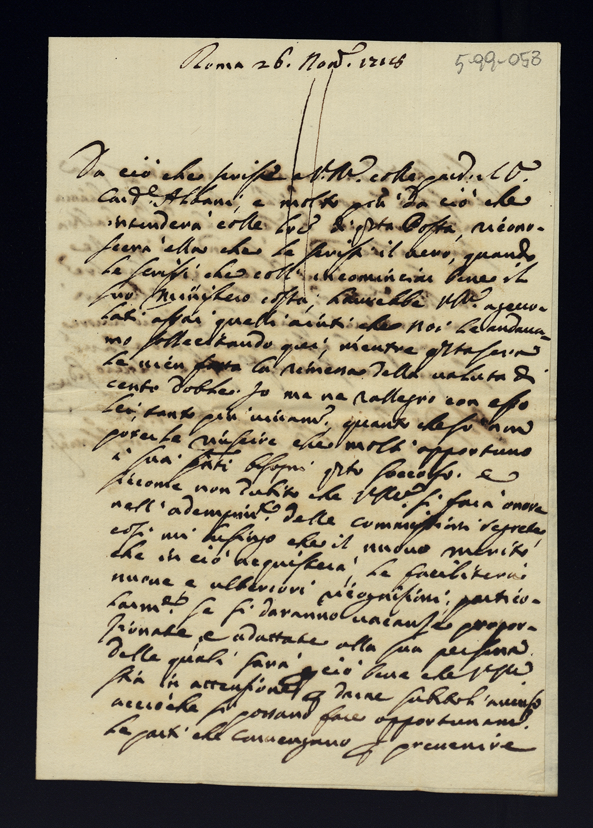 Roma 26. Nov.e 1718
5-99-053
Da ciò che scrisse a V.S. colle passate il S.r
Card.l Albani, e molto più da ciò che
intenderà colle di q.sta Posta, ricono-
scerà ella che le scrissi il vero, quando
le scrissi che coll' incominciar bene il
suo Ministero costà, haurebbe V.S. agevo-
lati assai quelli aiuti che noi le andava-
mo sollecitando quà, mentre q.sta sera
le vien fatta la rimessa della valuta di
cento doble. Io me ne rallegro con esso
lei, tanto più quanto che sò non
poterle riuscire che molto opportuno
a suoi bisogni q.sto soccorso. e
siccome non dubito che V.S. si farà onore
nell' adempim.to delle commissioni
così mi lusingo che il nuovo merito
che in ciò acquisterà, le faciliterà
nuove e ulteriori ricognizioni, partico-
larm.te se si daranno vacanze propor-
zionate, e adattate alla sua persona
delle quali sarà ciò bene che V.S.
stia in attenzione p darne subito l'avviso
acciochè si possano fare opportunam.te
le parti che convengano p prevenire